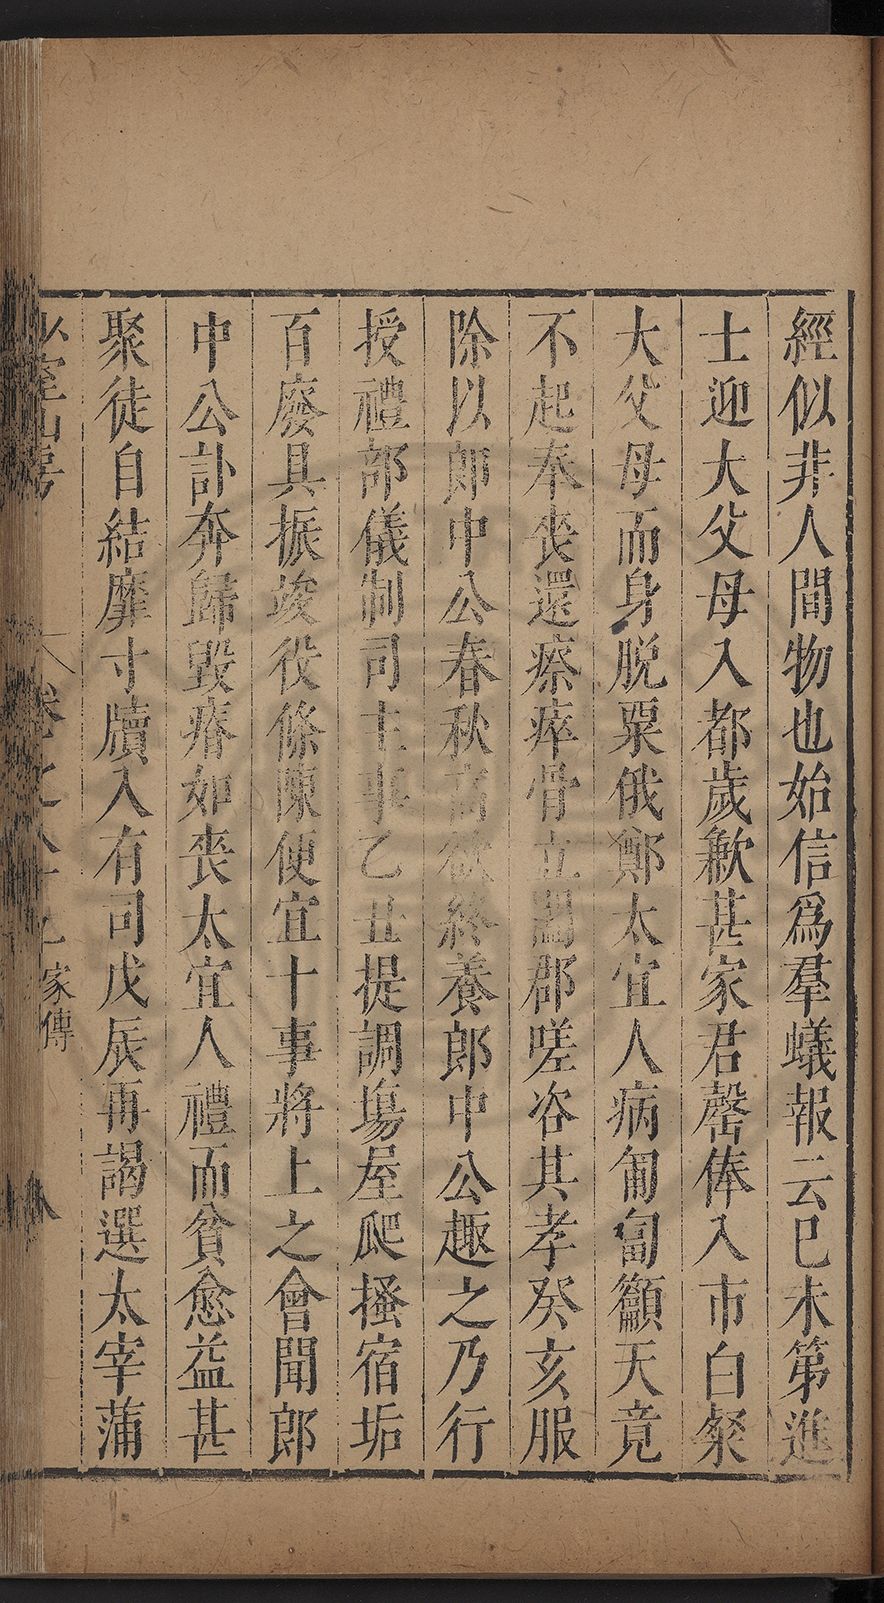 經似非人間物也始信爲羣蟻報云巳未第進
士迎大父母入都歲歉甚家君罄俸入市白粲
大父母而身脱粟俄鄭太宜人病匍匐籲天竟
不起奉丧還瘵瘁骨立闔郡嗟咨其孝癸亥服
除以郎中公春秋高欲終養郎中公趣之乃行
授禮部儀制司主事乙丑提調塲屋爬搔宿垢
百廢具振竣役條陳便宜十事將上之會聞郎
中公訃奔歸毁瘠如丧太宜人禮而貧愈益甚
聚徒自結靡寸牘入有司戊辰再謁選太宰蒲
少室山房
卷之八十九
家傳
八